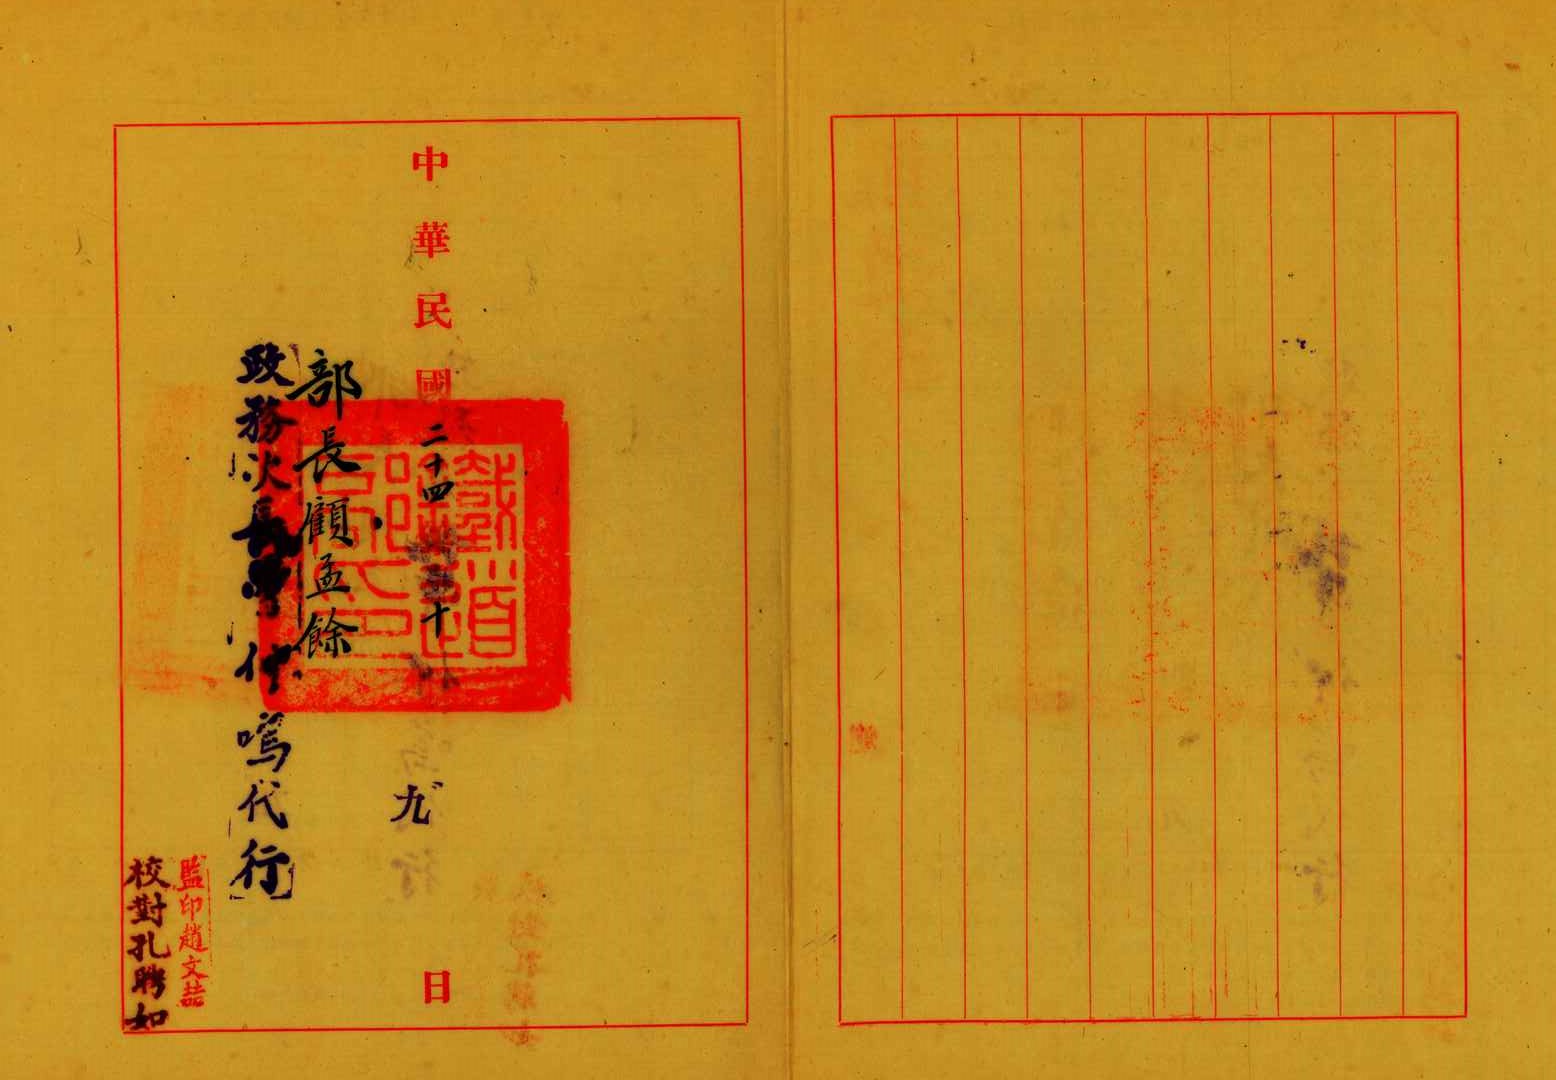 中華民國二十四年十 九 日
部長顧孟餘
政務次長曾 鳴代行
監印趙文喆
校對孔聘如